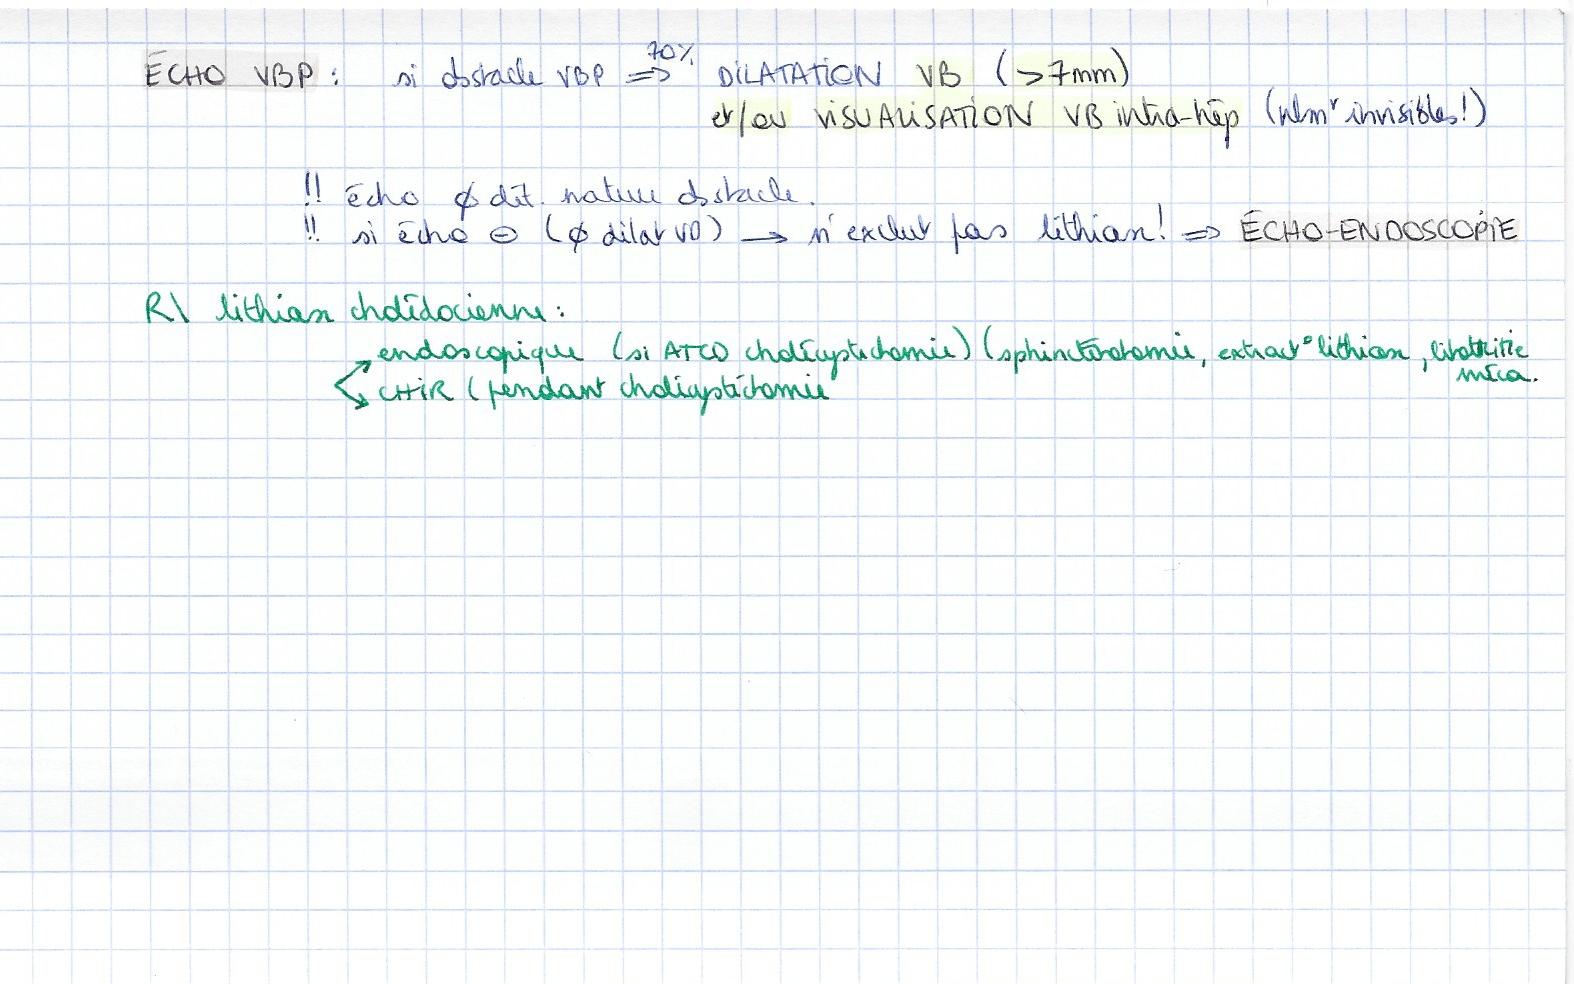 ÉCHO VBP : si obstacle VBP =>70% DILATATION VB (>7mm)
et/ou VISUALISATION VB intra-hép (nlmt invisibles!)
!! écho ∅ dét. nature obstacle.
!! si écho ⊖ (∅ dilat VB) → n'exclut pas lithiase! => ÉCHO-ENDOSCOPIE
R\ lithiase cholédocienne :
endoscopique (si ATCD cholécystéctomie) (sphinctérotomie, extract° lithiase, lithotritie
méca.
CHIR (pendant cholécystéctomie